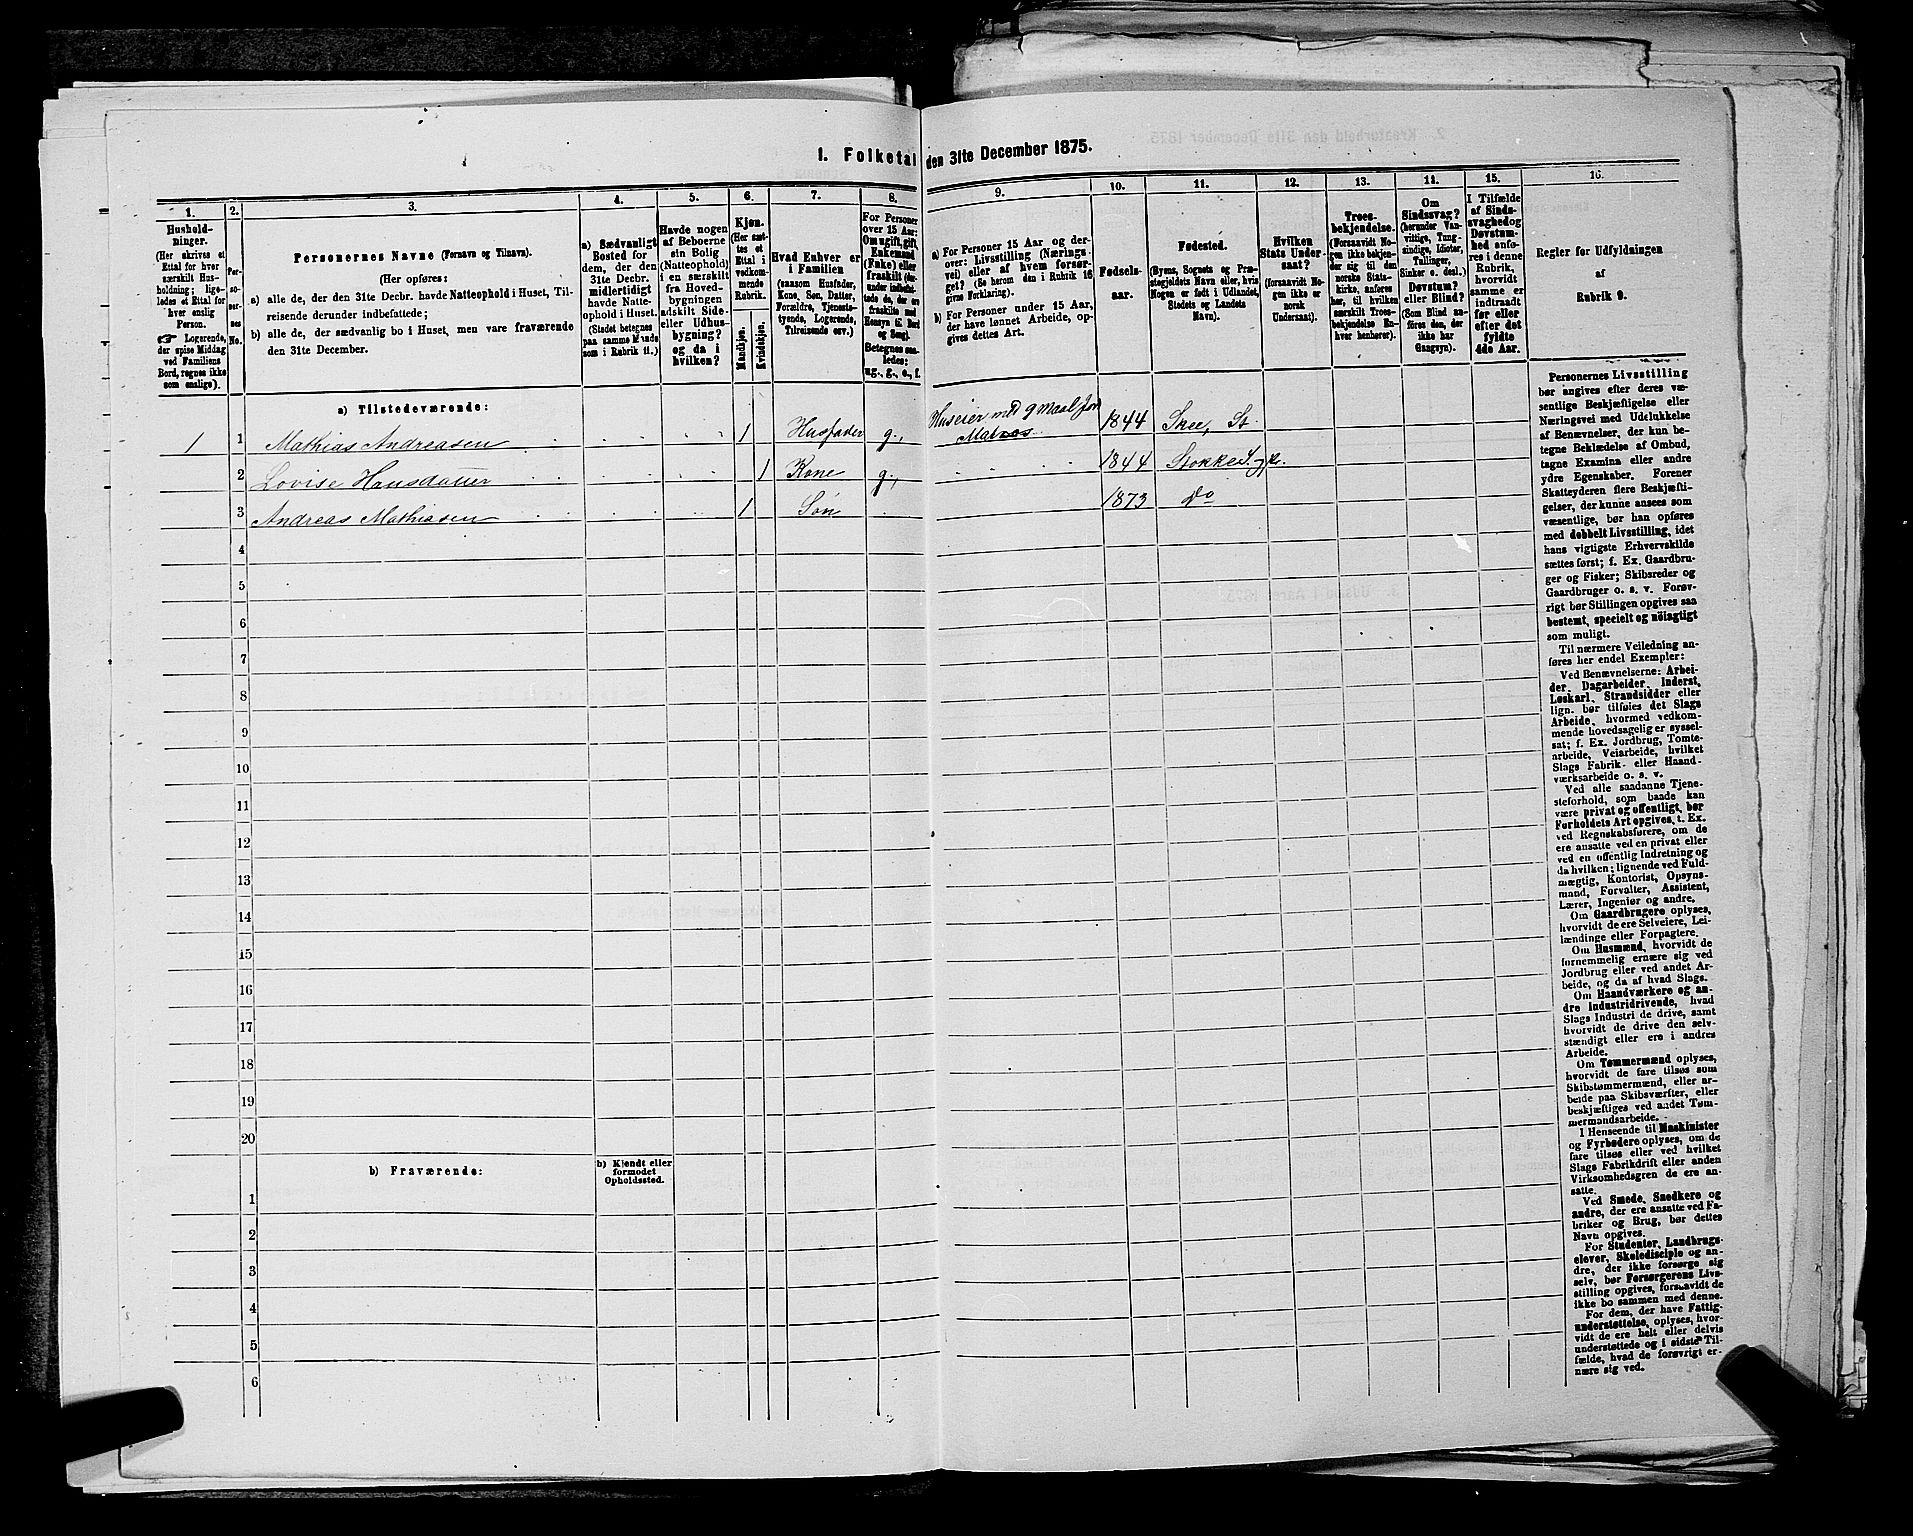 1. Folketal den 31te December 1875.
1.
2.
3.
4.
5.
6.
7.
8.
9.
10.
11.
12.
13.
14.
15.
16.
Hushold-
ninger.
(Her skrives et
Ettal for hver
særskilt Hus-
holdning; lige-
ledes et Ettal for
hver enslig
Person.
☞ Logerende,
der spise Middag
ved Familiens
Bord, regnes ikke
som enslige).
Per-
so-
ner-
nes
No.
Personernes Navne (Fornavn og Tilnavn).
(Her opføres:
a) alle de, der den 31te Decbr. havde Natteophold i Huset, Til-
reisende derunder indbefattede;
b) alle de, der sædvanlig bo i Huset, men vare fraværende
den 31te December.
a) Sædvanligt
Bosted for
dem, der den
31te Decbr.
midlertidigt
havde Natte-
ophold i Huset.
(Stedet betegnes
paa samme Maade
som i Rubrik 11.)
Havde nogen
af Beboerne
sin Bolig
(Natteophold)
i en særskilt
fra Hoved-
bygningen
adskilt Side-
eller Udhus-
bygning?
og da i
hvilken?
Kjøn.
(Her sæt-
tes et
Ettal i
vedkom-
mende
Rubrik.
Mandkjøn.
Kvindekjøn.
Hvad Enhver er
i Familien
(saasom Husfader,
Kone, Søn, Datter,
Forældre, Tjeneste-
tyende, Logerende,
Tilreisende osv.)
For Personer
over 15 Aar:
Om ugift, gift,
Enkemand
(Enke) eller
fraskilt (der-
under indbefat-
tede de, der ere
fraskilte med
Hensyn til Bord
og Seng).
Betegnes saa-
ledes:
ug., g., e., f.
a) For Personer 15 Aar og der-
over: Livsstilling (Nærings-
vei) eller af hvem forsør-
get? (Se herom den i Rubrik 16
givne Forklaring).
b) For Personer under 15 Aar,
der have lønnet Arbeide, op-
gives dettes Art.
Fødsels-
aar.
Fødested.
(Byens, Sognets og Præ-
stegjeldets Navn eller, hvis
Nogen er født i Udlandet,
Stedets og Landets
Navn).
Hvilken
Stats Under-
saat?
(forsaavidt No-
gen ikke er
norsk
Undersaat).
Troes-
bekjendelse.
(Forsaavidt No-
gen ikke bekjen-
der sig til den
norske Stats-
kirke, anføres
her, til hvilken
særskilt Troes-
bekjendelse En-
hver henhører).
Om
Sindssvag?
(herunder Van-
vittige, Tung-
sindige, Idioter,
Tullinger,
Sinker o. desl.)
Døvstum?
eller Blind?
(Som Blind an-
føres den, der
ikke har
Gangsyn).
I Tilfælde
af Sinds-
svaghed og
Døvstum-
hed anfø-
res i denne
Rubrik,
hvorvidt
samme er
indtraadt
før eller
efter det
fyldte
4de Aar.
Regler for Udfyldningen
af
Rubrik 9.
a) Tilstedeværende:
1 1 Mathias Andreasen 1 Husfader g., Huseier med 9 Maal Jord 1844 Skee, St.
2 Lovise Hansdatter 1 Kone g., 1844 Stokke S. gk.
3 Andreas Mathiasen 1 Søn 1873 Do
4
5
6
7
8
9
10
11
12
13
14
15
16
17
18
19
20
b) Fraværende:
b) Kjendt eller
formodet
Opholdssted.
1
2
3
4
5
6
Personernes Livsstilling
bør angives efter deres væ-
sentlige Beskjæftigelse eller
Næringsvei med Udelukkelse
af Benævnelser, der kun be-
tegne Beklædelse af Ombud,
tagne Examina eller andre
ydre Egenskaber. Forener
Skatteyderen flere Beskjæfti-
gelser, der kunne ansees som
væsentlige, bør han opføres
med dobbelt Livsstilling, idet
hans vigtigste Erhvervskilde
sættes først; f. Ex. Gaardbru-
ger og Fisker; Skibsreder og
Gaardbruger o. s. v. Forøv-
rigt bør Stillingen opgives saa
bestemt, specielt og nöiagtigt
som muligt.
Til nærmere Veiledning an-
føres her endel Exempler:
Ved Benævnelserne: Arbei-
der, Dagarbeider, Inderst,
Løskarl, Strandsidder eller
lign. bør tilføies det Slags
Arbeide, hvormed vedkom-
mende hovedsagelig er syssel-
sat; f. Ex. Jordbrug, Tomte-
arbeide, Veiarbeide, hvilket
Slags Fabrik- eller Haand-
værksarbeide o. s. v.
Ved alle saadanne Tjene-
steforhold, som baade kan
være privat og offentligt, bør
Forholdets Art opgives, t. Ex.
ved Regnskabsførere, om de
ere ansatte ved en privat eller
ved en offentlig Indretning og
da hvilken; lignende ved Fuld-
mægtig, Kontorist, Opsyns-
mand, Forvalter, Assistent,
Lærer, Ingeniør og andre.
Om Gaardbrugere oplyses,
hvorvidt de ere Selveiere, Lei-
lændinge eller Forpagtere.
Om Husmænd, hvorvidt de
fornemmelig ernære sig ved
Jordbrug eller ved andet Ar-
beide, og da af hvad Slags.
Om Haandværkere og an-
dre Industridrivende, hvad
Slags Industri de drive, samt
hvorvidt de drive den selv-
stændigt eller ere i andres
Arbeide.
Om Tømmermænd oplyses,
hvorvidt de fare tilsøs som
Skibstømmermænd, eller ar-
beide paa Skibsværfter, eller
beskjæftiges ved andet Tøm-
mermandsarbeide.
I Henseende til Maskinister
og Fyrbødere oplyses, om de
fare tilsøs eller ved hvilket
Slags Fabrikdrift eller anden
Virksomhedsgren de ere an-
satte.
Ved Smede, Snedkere og
andre, der ere ansatte ved Fa-
briker og Brug, bør dettes
Navn opgives.
For Studenter, Landbrugs-
elever, Skoledisciple og an-
dre, der ikke forsørge sig
selv, bør Forsørgerens Livs-
stilling opgives, forsaavidt de
ikke bo sammen med denne.
For dem, der have Fattig-
understøttelse, oplyses, hvor-
vidt de ere helt eller delvis
understøttede og i sidste Til-
fælde, hvad de forøvrigt er-
nære sig ved.